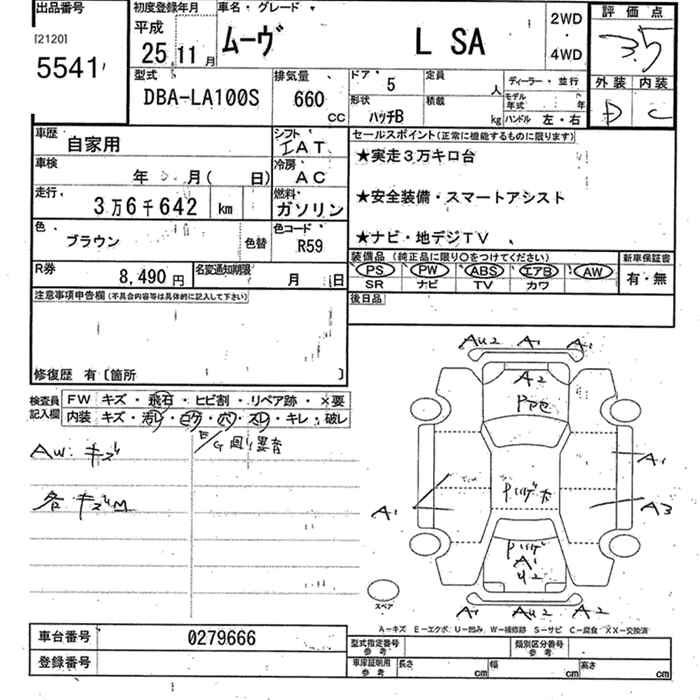 出品番号
[2120]
5541
初度登録年月
平成
25 11月
車名・グレード
ムーヴ L SA
2WD
・
4WD
評価点
3.5
外装 内装
D C
型式
DBA-LA100S
排気量
660
CC
ドア
5
形状
ハッチB
定員
人
積載
kg
ディーラー・並行
モデル年式 年
ハンドル 左・右
車歴
自家用
シフト
IAT
車検
年 月( 日)
冷房
AC
走行
3万6千642 km
燃料
ガソリン
色
ブラウン
色替
色コード
R59
R券
8,490 円
名変通知期限
月 日
セールスポイント(正常に機能するものに限ります)
★実走3万キロ台
★安全装備・スマートアシスト
★ナビ・地デジTV
装備品 (純正品に限り○をつけてください)
PS PW ABS エアB AW
SR ナビ TV カワ
新車保証書
有・無
後日品
注意事項申告欄(不具合内容等は具体的に記入して下さい)
修復歴 有〔箇所 〕
検査員
記入欄
FW キズ・飛石・ヒビ割・リペア跡・×要
内装 キズ・汚レ・コゲ・穴・スレ・キレ・破レ
AW. キズ
E/G 回り異音
各キズM
AU2 A1 A1
A2
A1
A1
A3
A1
U2
A1 AU2 A2
スペア
A−キズ E−エクボ U−凹み W−補修跡 S−サビ C−腐食 XX−交換済
車台番号
0279666
登録番号
型式指定番号
参考
類別区分番号
参考
車庫証明用
参考
長さ cm 幅 cm 高さ cm